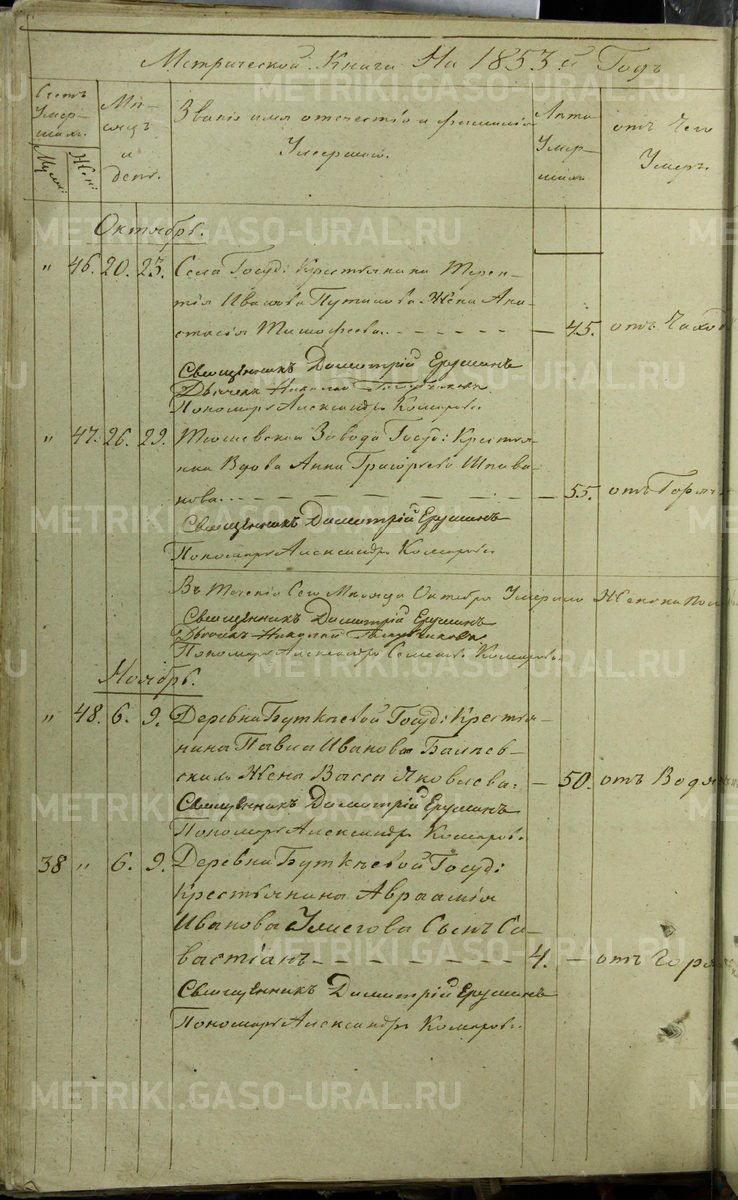 Метрической Книги На 1853й Годъ
Счетъ Умер-шихъ.
Муж: Жен:
Мѣ-сяцъ и день.
Званіе имя отечество и фамилія Умершаго.
Лѣта Умер-шихъ
отъ Чего Умеръ.
Октябрь.
" 46. 20. 23. Села Госуд: Крестьянина Терен-
тія Иванова Жена Ана-
стасія Тимофеева. 45. отъ Чахо
Священникъ Димитрій
Дьячекъ Николай
Пономарь Александръ Комаровъ.
" 47. 26. 29. Завода Госуд: Крестья-
нка Вдова Анна Григорьева
нова. 55. отъ Горяч
Священникъ Димитрій
Пономарь Александръ Комаровъ.
Въ Теченіе Сего Месяца Октября Умерло Женска Пол
Священникъ Димитрій
Дьячекъ Николай
Пономарь Александръ Комаровъ.
Ноябрь.
" 48. 6. 9. Деревни Буткѣевой Госуд: Крестья-
нина Павла Иванова
Жена Васса Яковлева. 50. отъ Водя
Священникъ Димитрій
Пономарь Александръ Комаровъ.
38 " 6. 9. Деревни Буткѣевой Госуд:
Крестьянина Авраамія
Иванова Сынъ Са-
вастіанъ 4. отъ Горя
Священникъ Димитрій
Пономарь Александръ Комаровъ.
METRIKI.GASO-URAL.RU